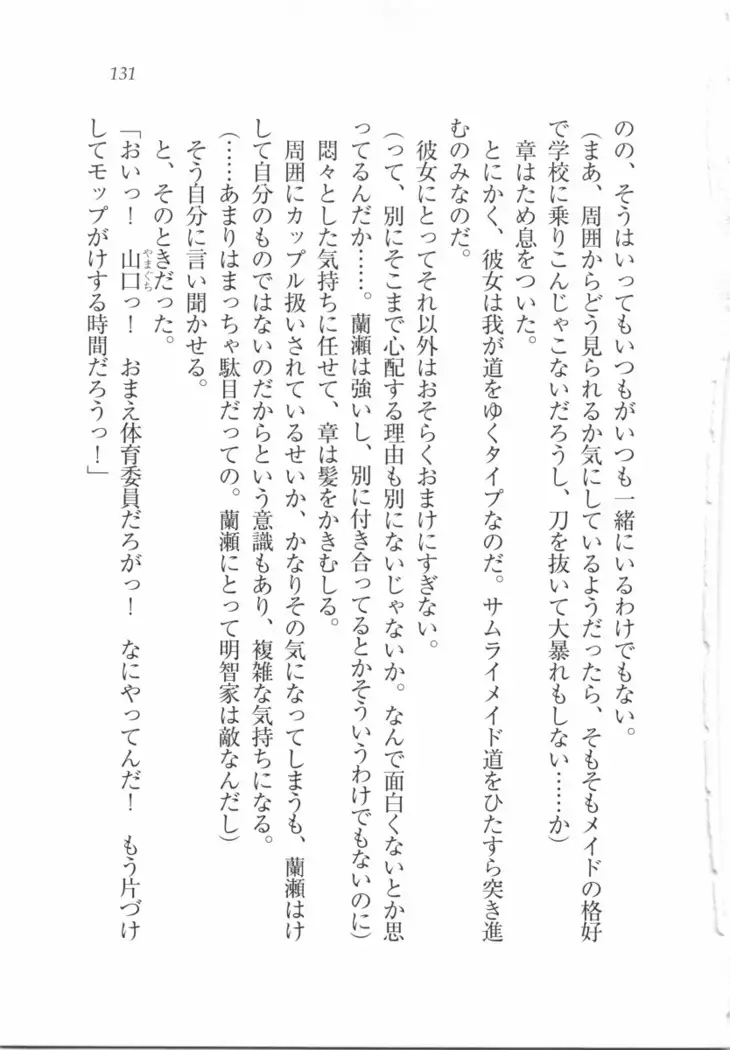 131
のの、そうはいってもいつもがいつも一緒にいるわけでもない。
(まあ、周囲からどう見られるか気にしているようだったら、そもそもメイドの格好
で学校に乗りこんじゃこないだろうし、刀を抜いて大暴れもしない……か)
章はため息をついた。
とにかく、彼女は我が道をゆくタイプなのだ。サムライメイド道をひたすら突き進
むのみなのだ。
彼女にとってそれ以外はおそらくおまけにすぎない。
(って、別にそこまで心配する理由も別にないじゃないか。なんで面白くないとか思
ってるんだか……。蘭瀬は強いし、別に付き合ってるとかそういうわけでもないのに)
悶々とした気持ちに任せて、章は髪をかきむしる。
周囲にカップル扱いされているせいか、かなりその気になってしまうも、蘭瀬はけ
して自分のものではないのだからという意識もあり、複雑な気持ちになる。
(……あまりはまっちゃ駄目だっての。蘭瀬にとって明智家は敵なんだし)
そう自分に言い聞かせる。
と、そのときだった。
「おいっ! 山口っ! おまえ体育委員だろがっ! なにやってんだ! もう片づけ
やまぐち
してモップがけする時間だろうっ!」